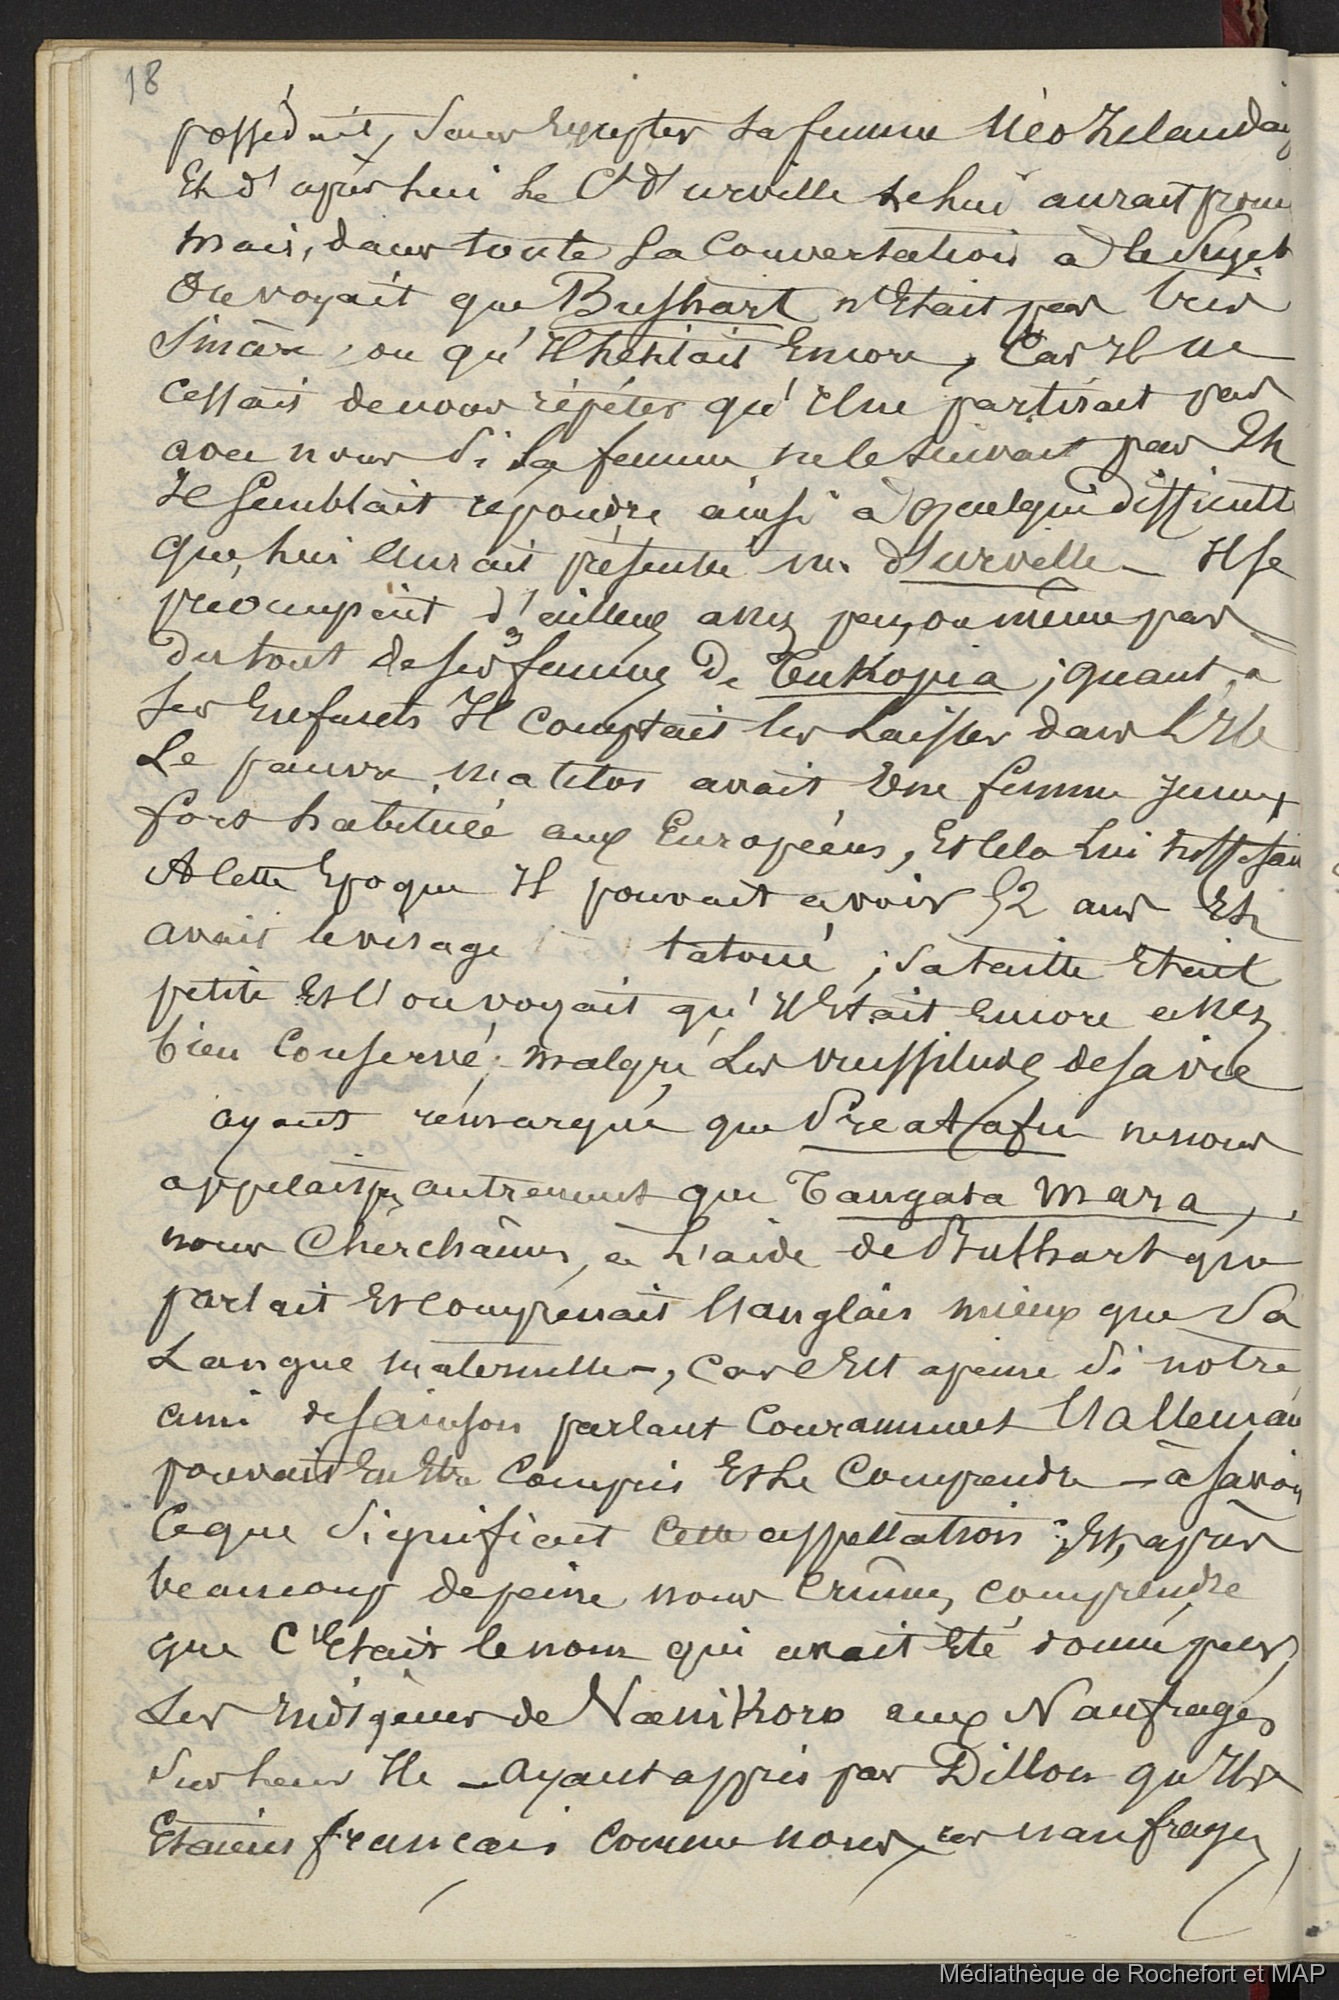 18
possédait, sans excepter sa femme Néo Zelandai
Et d'après lui le Ct d'urville le lui aurait promi
mais, dans toute la Conversation à ce Sujet
On voyait que Bushart n'Etait pas bien
Sincère, ou qu'Il hésitait Encore, Car Il ne
Cessait de nous répéter qu'Il ne partirait pas
avec nous Si Sa femme ne le suivait pas Et
Il semblait repondre ainsi à quelque difficulté
que lui aurait présenté m. d'urville — Il se
préoccupait d'ailleurs assez peu, ou même pas
du tout de ses 3 femmes de Tukopia ; quant à
ses Enfants Il Comptait les laisser dans l'Ile
Le pauvre matelos avait Une femme jeune,
fort habituée aux Européens, Et Cela Lui suffisait
A Cette Epoque Il pouvait avoir 52 ans Et
avait le visage tatoué ; Sa taille Etait
petite Et l'on voyait qu'Il Etait Encore assez
bien Conservé ; malgré les vicissitudes de sa vie
ayant remarqué que Preatafu ne nous
appelait pas autrement que Tangata Mara,
nous Cherchâmes, à l'aide de Bushart qui
parlait Et Comprenait l'anglais mieux que Sa
Langue maternelle —, Car C'Est à peine Si notre
ami de Sainson parlant Couramment l'alleman
pouvait En Etre Compris Et Le Comprendre — à savoir
Ce que Signifiait Cette appellation ; Et, après
beaucoup de peine nous Crûmes Comprendre
que C'Etait le nom qui avait Eté donné par
Les Indigènes de Vanikoro aux Naufragés
Sur leur Ile — ayant appris par Dillon qu'Ils
Etaient français Comme nous, ces naufragés
Médiathèque de Rochefort et MAP